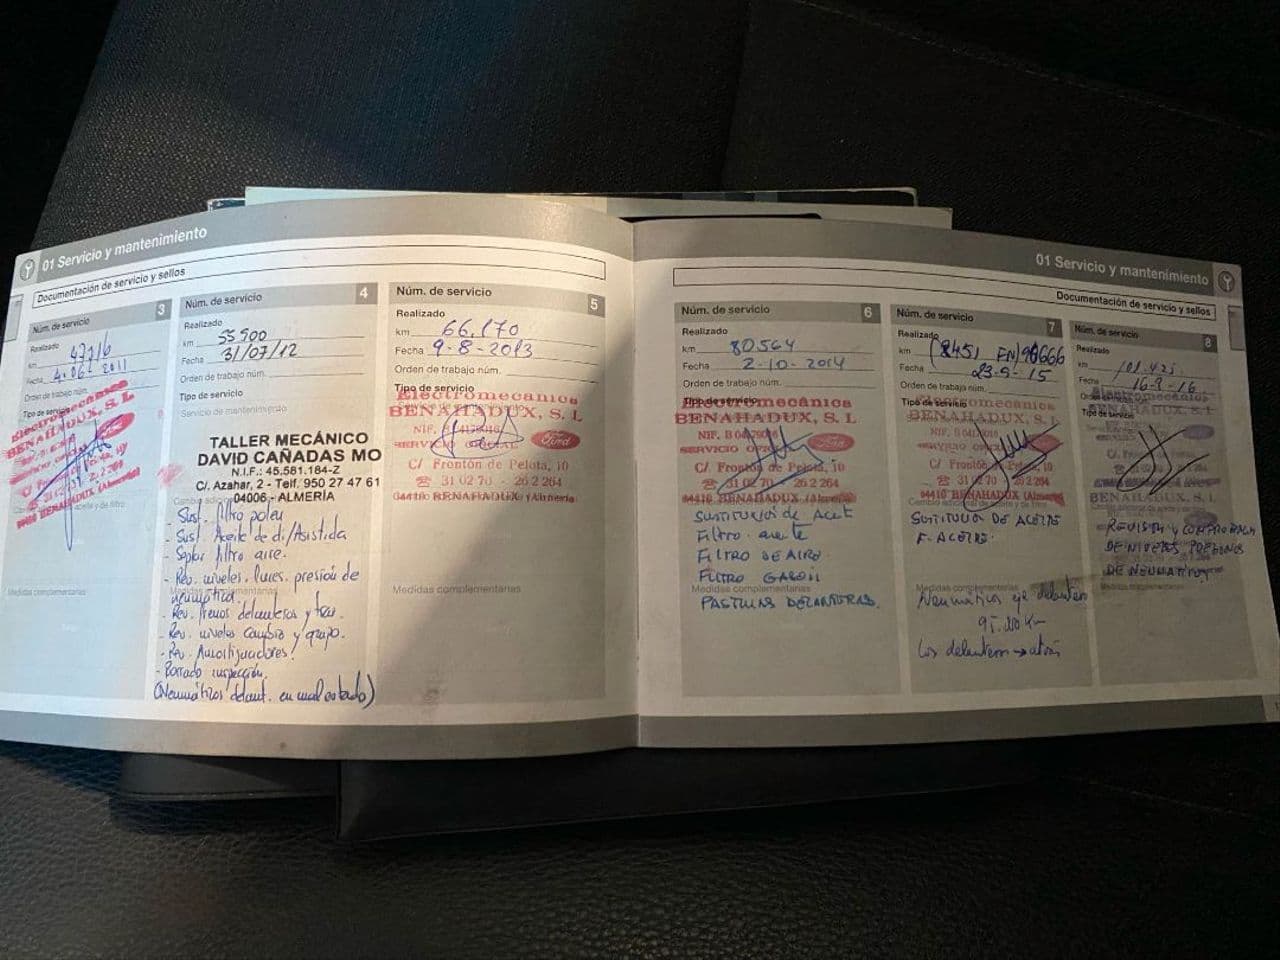 01 Servicio y mantenimiento
Documentación de servicio y sellos
Núm. de servicio 3
Realizado
km 47716
Fecha 4-06-2011
Orden de trabajo núm.
Tipo de servicio
Electromecánica
BENAHADUX, S. L.
04410 BENAHADUX (Almería)
Medidas complementarias
Núm. de servicio 4
Realizado
km 55900
Fecha 31/07/12
Orden de trabajo núm.
Tipo de servicio
Servicio de mantenimiento
TALLER MECÁNICO
DAVID CAÑADAS MO
N.I.F.: 45.581.184-Z
C/. Azahar, 2 - Telf. 950 27 47 61
04006 - ALMERÍA
- Sust. filtro polen
- Sust. Aceite de di/Asistida
- Soplar filtro aire.
- Rev. niveles, luces, presión de
neumáticos
Medidas complementarias
- Rev. frenos delanteros y tras.
- Rev. niveles cambio y grupo.
- Rev. Amortiguadores.
- Borrado inspección.
(Neumáticos delant. en mal estado)
Núm. de servicio 5
Realizado
km 66.170
Fecha 9-8-2013
Orden de trabajo núm.
Tipo de servicio
Electromecánica
BENAHADUX, S. L
NIF. B 04179016
SERVICIO OFICIAL Ford
C/ Frontón de Pelota, 10
☎ 31 02 70 - 26 2 264
04410 BENAHADUX (Almería)
Medidas complementarias
01 Servicio y mantenimiento
Documentación de servicio y sellos
Núm. de servicio 6
Realizado
km 80564
Fecha 2-10-2014
Orden de trabajo núm.
Tipo de servicio
Electromecánica
BENAHADUX, S. L
NIF. B 04179016
SERVICIO OFICIAL Ford
C/ Frontón de Pelota, 10
☎ 31 02 70 - 26 2 264
04410 BENAHADUX (Almería)
SUSTITUCION DE ACEIT
FILTRO aceite
FILTRO DE AIRE
FILTRO GASOIL
Medidas complementarias
PASTILLAS DELANTERAS.
Núm. de servicio 7
Realizado
km
Fecha 23-9-15
Orden de trabajo núm.
Tipo de servicio
Electromecánica
BENAHADUX, S. L
NIF. B 04179016
SERVICIO OFICIAL
C/ Frontón de Pelota, 10
☎ 31 02 70 - 26 2 264
04410 BENAHADUX (Almería)
Cambio adicional de aceite y de filtro
SUSTITUCION DE ACEITE
F. ACEITE.
Medidas complementarias
Neumáticos eje delantero
95.200 Km
Los delanteros → atrás
Núm. de servicio 8
Realizado
km 101.425
Fecha 16-9-16
Tipo de servicio
Electromecánica
BENAHADUX, S. L
REVISION Y COMPROBACION
DE NIVELES, PRESIONES
DE NEUMATICOS
Medidas complementarias